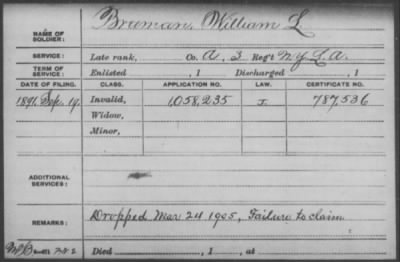 NAME OF SOLDIER: Breeman, William L.
SERVICE: Late rank, Co. A, 3 Reg't N.Y.L.A.
TERM OF SERVICE: Enlisted , 1 Discharged , 1
DATE OF FILING. CLASS. APPLICATION NO. LAW. CERTIFICATE NO.
1891, Sep. 19. Invalid, 1,058,235 J. 787,536
Widow,
Minor,
ADDITIONAL SERVICES:
REMARKS: Dropped Mar 24 1905, Failure to claim
Died , 1 , at